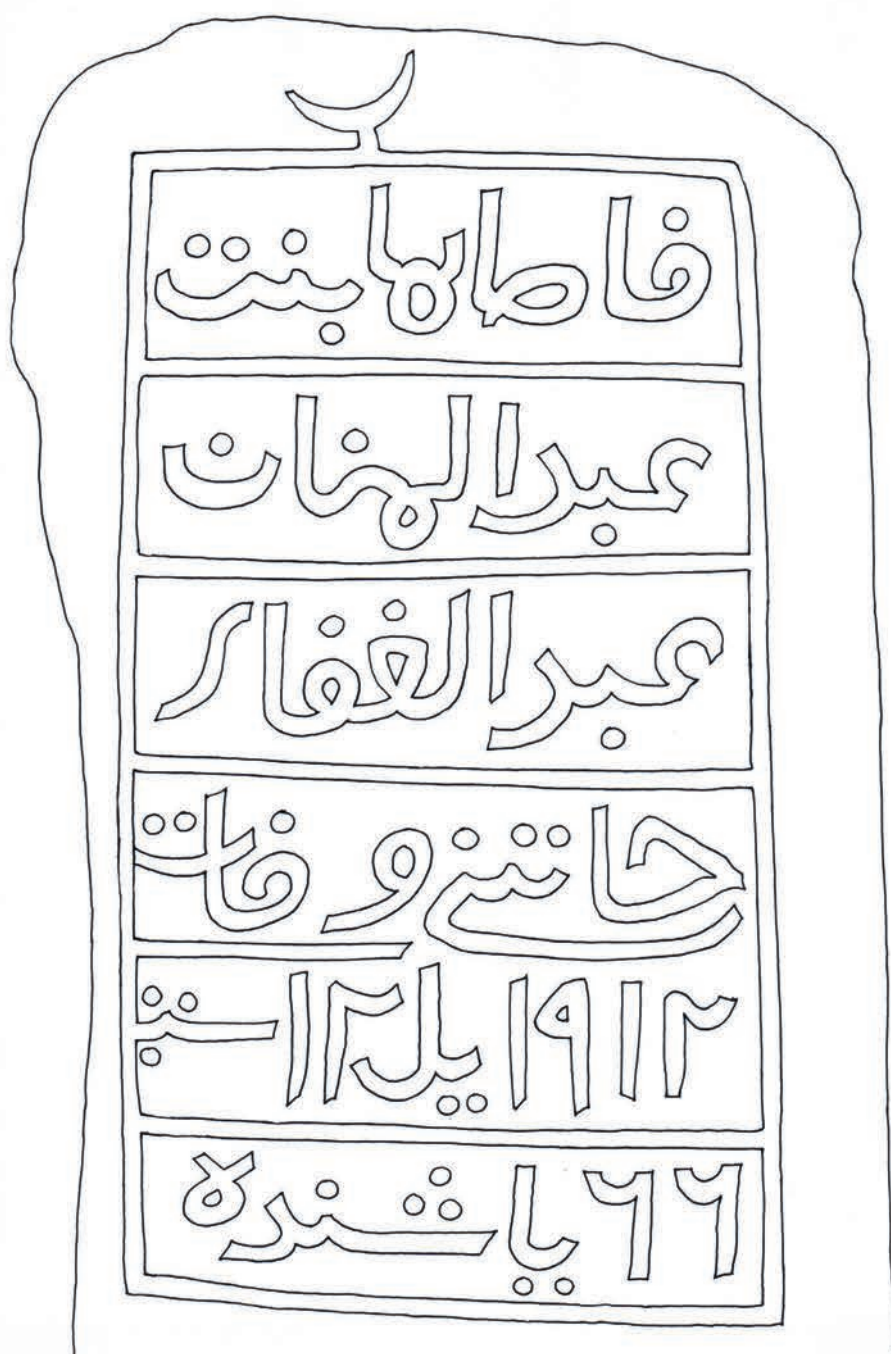 فاطما بنت
عبدالمنان
عبدالغفار
حاتنی وفات
١٩١٢ يل ١٢
٦٦ ياشنده